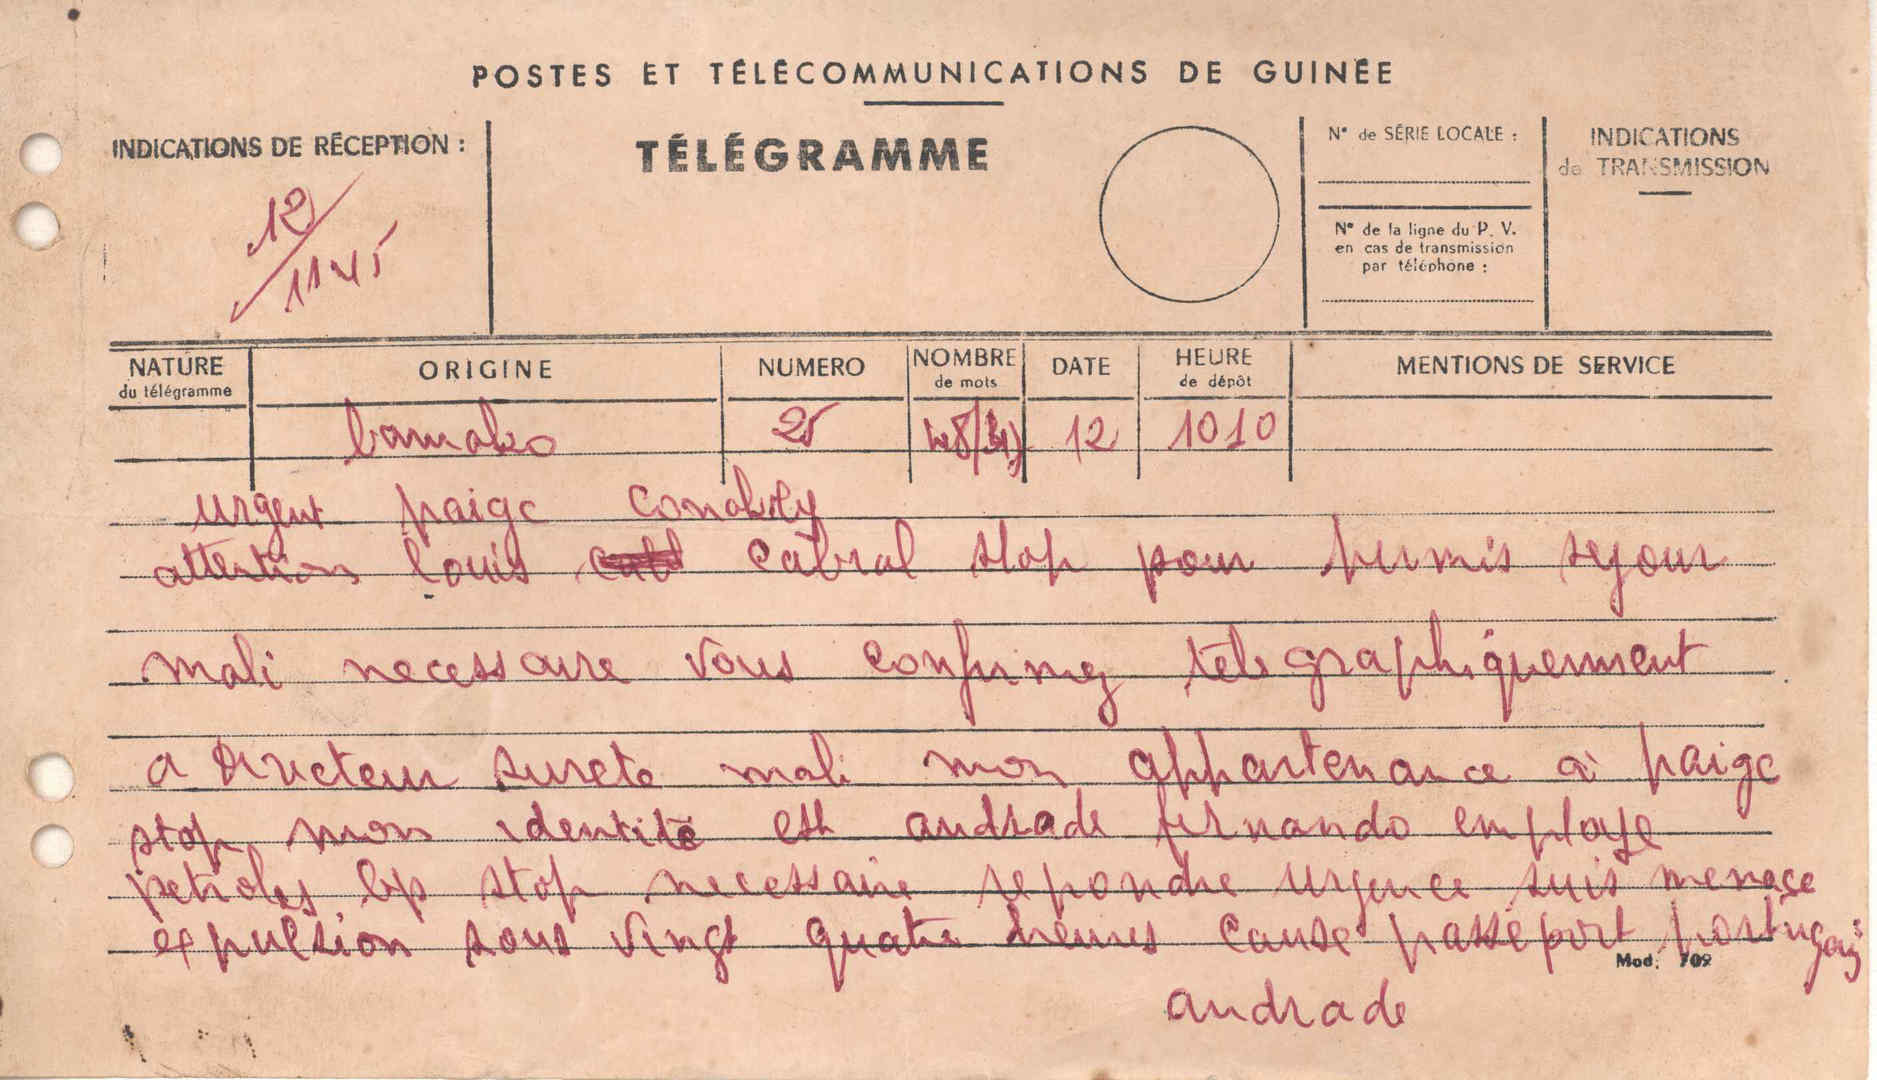 POSTES ET TÉLÉCOMMUNICATIONS DE GUINÉE
INDICATIONS DE RÉCEPTION :
12
1145
TÉLÉGRAMME
N° de SÉRIE LOCALE :
N° de la ligne du P. V.
en cas de transmission
par téléphone :
INDICATIONS
de TRANSMISSION
NATURE
du télégramme
ORIGINE
NUMERO
NOMBRE
de mots
DATE
HEURE
de dépôt
MENTIONS DE SERVICE
bamako 25 12 1010
urgent paigc Conakry
attention louis cabral stop pour permis sejour
mali necessaire vous confirmez telegraphiquement
a directeur surete mali mon appartenance à paigc
stop mon identité est andrade fernando employe
petroles bp stop necessaire repondre urgence suis menace
expulsion sous vingt quatre heures cause passeport portugais
Mod. 709
andrade